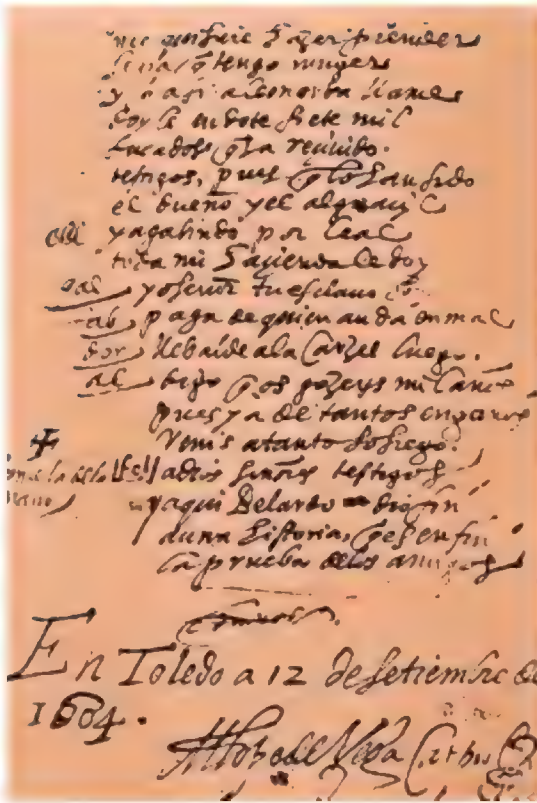 hazer prender
q tengo muger
y
doyle en dote siete mil
ducados q
testigos, pues q lo han sido
el bueno y el alguazil
y a galindo por leal
toda mi hazienda le doy
gal yo señor tu esclavo
fab paga de quien anda en mal
dor llebalde a la carzel luego.
digo q os gozeys mil años
pues ya de tantos engaños
venis a tanto sosiego.
adios señores testigos
y aqui Belardo dio fin
a una historia, q es en fin
la prueba de los amigos
En Toledo a 12 de setiembre de
1604.
Lope de Vega Carpio